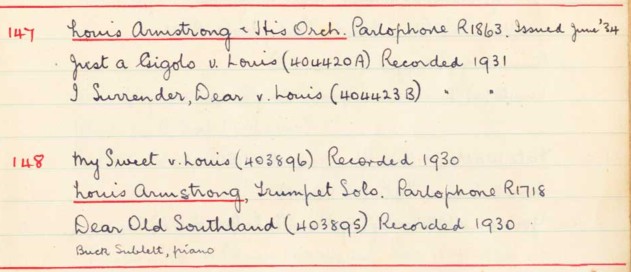 147 Louis Armstrong & His Orch. Parlophone R1863. Issued June '34
Just a Gigolo v. Louis (404420A) Recorded 1931
I Surrender, Dear v. Louis (404423B) " "
148 My Sweet v. Louis (403896) Recorded 1930
Louis Armstrong, Trumpet Solo. Parlophone R1718
Dear Old Southland (403895) Recorded 1930
Buck Sublett, piano